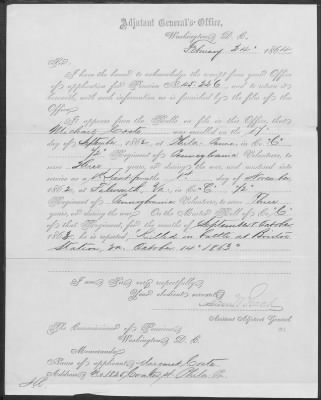 Adjutant General's Office,
Washington, D. C.
February 24" 1864
Sir:
I have the honor to acknowledge the receipt from your Office
of application for Pension No. 45.226, and to return it
herewith, with such information as is furnished by the files of this
Office.
It appears from the Rolls on file in this Office, that
Michael Coste was enrolled on the 17"
day of September, 1862, at Phila. Penna. in Co. "C"
72" Regiment of Pennsylvania Volunteers, to
serve Three years, or during the war, and mustered into
service as a on the day of November
1862, at Falmouth, Va., in Co. "C" 72"
Regiment of Pennsylvania Volunteers, to serve Three
years, or during the war. On the Muster Roll of Co. "C"
of that Regiment, for the months of September & October
1863, he is reported Killed in battle at Bristoe
Station, Va. October 14" 1863"
I am, Sir, very respectfully,
Your obedient servant,
Assistant Adjutant General
The Commissioner of Pensions,
Washington, D. C.
Memoranda:
Name of applicant, Margaret Coste
Address, Coates St. Phila. Pa.